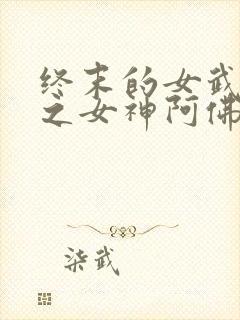 终末的女武
之女神阿佛
柒武